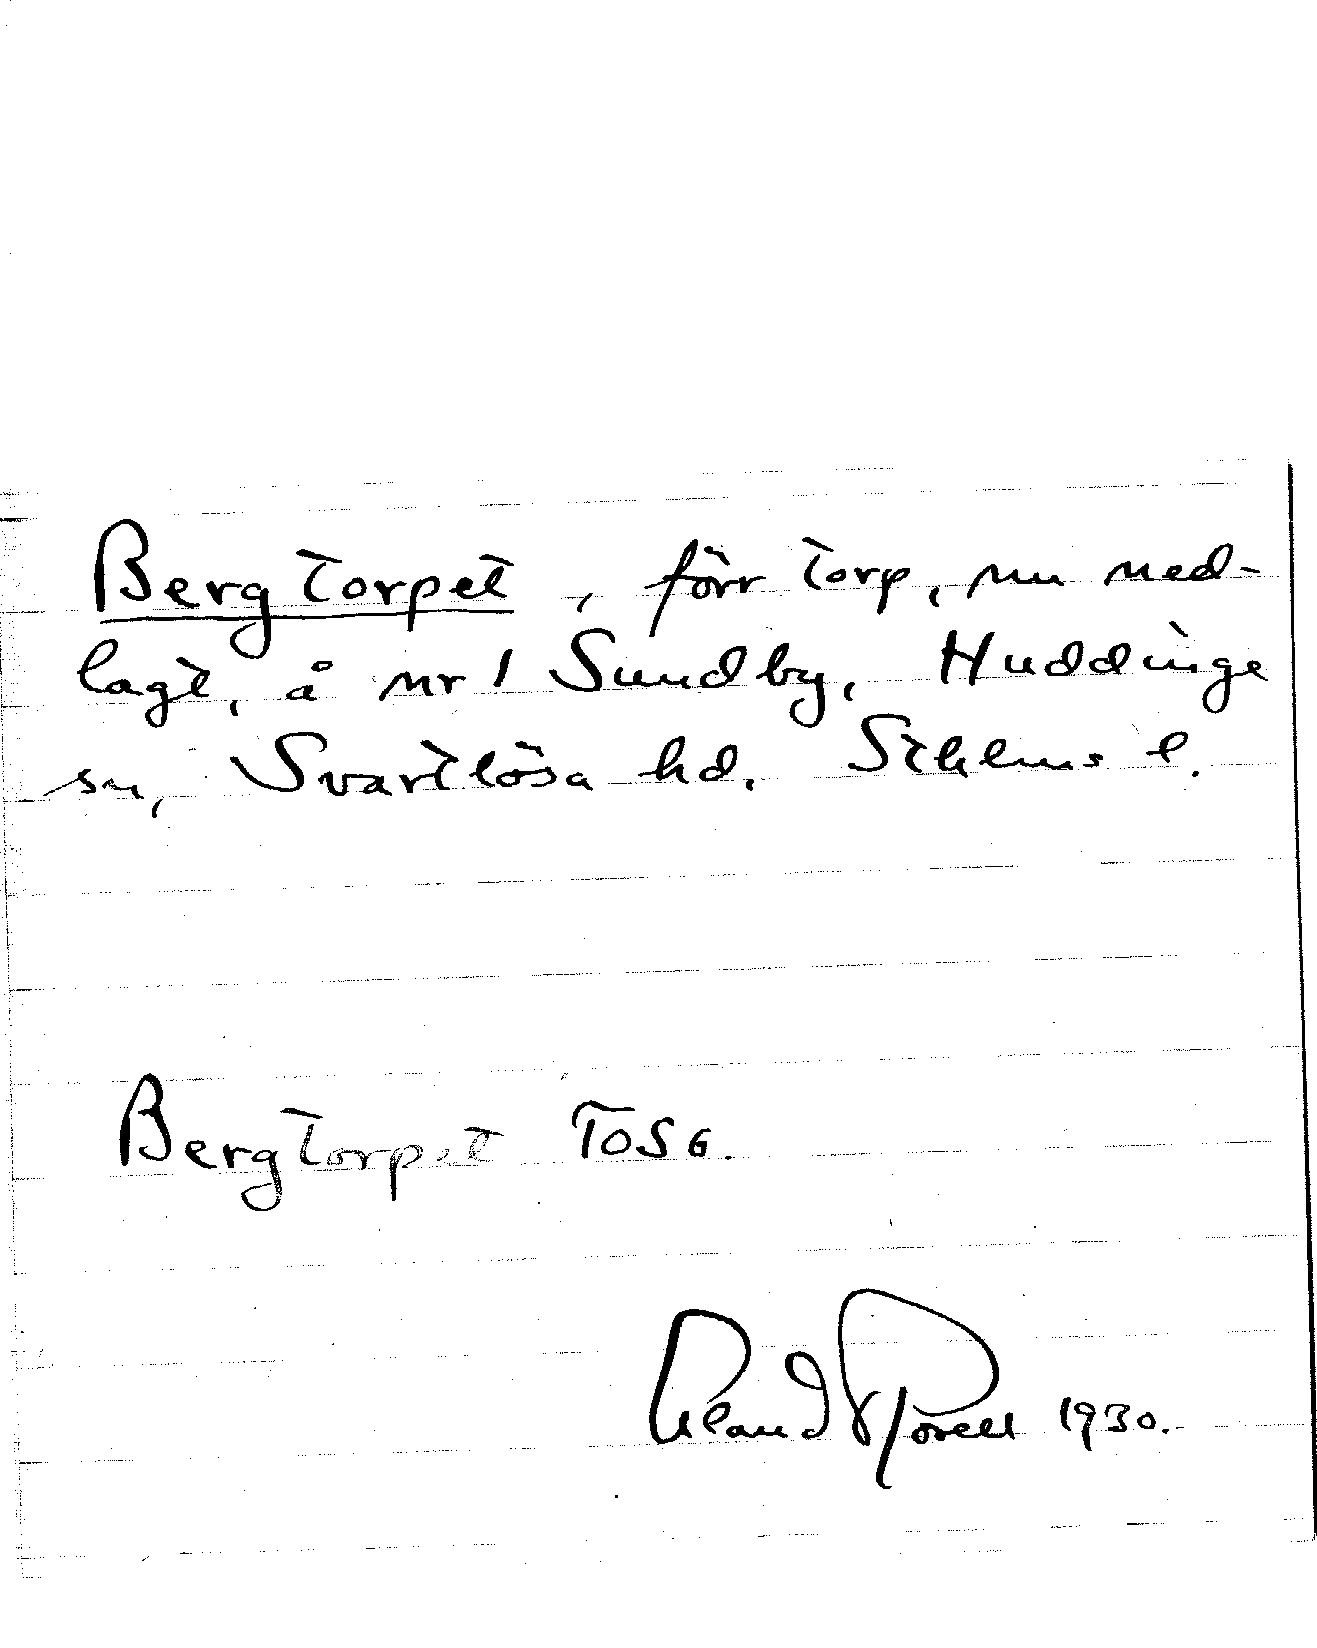 Bergtorpet, förr torp, nu ned-
lagt, å nr 1 Sundby, Huddinge
sn, Svartlösa hd. Sthlms l.
Bergtorpet TOSG.
1930.